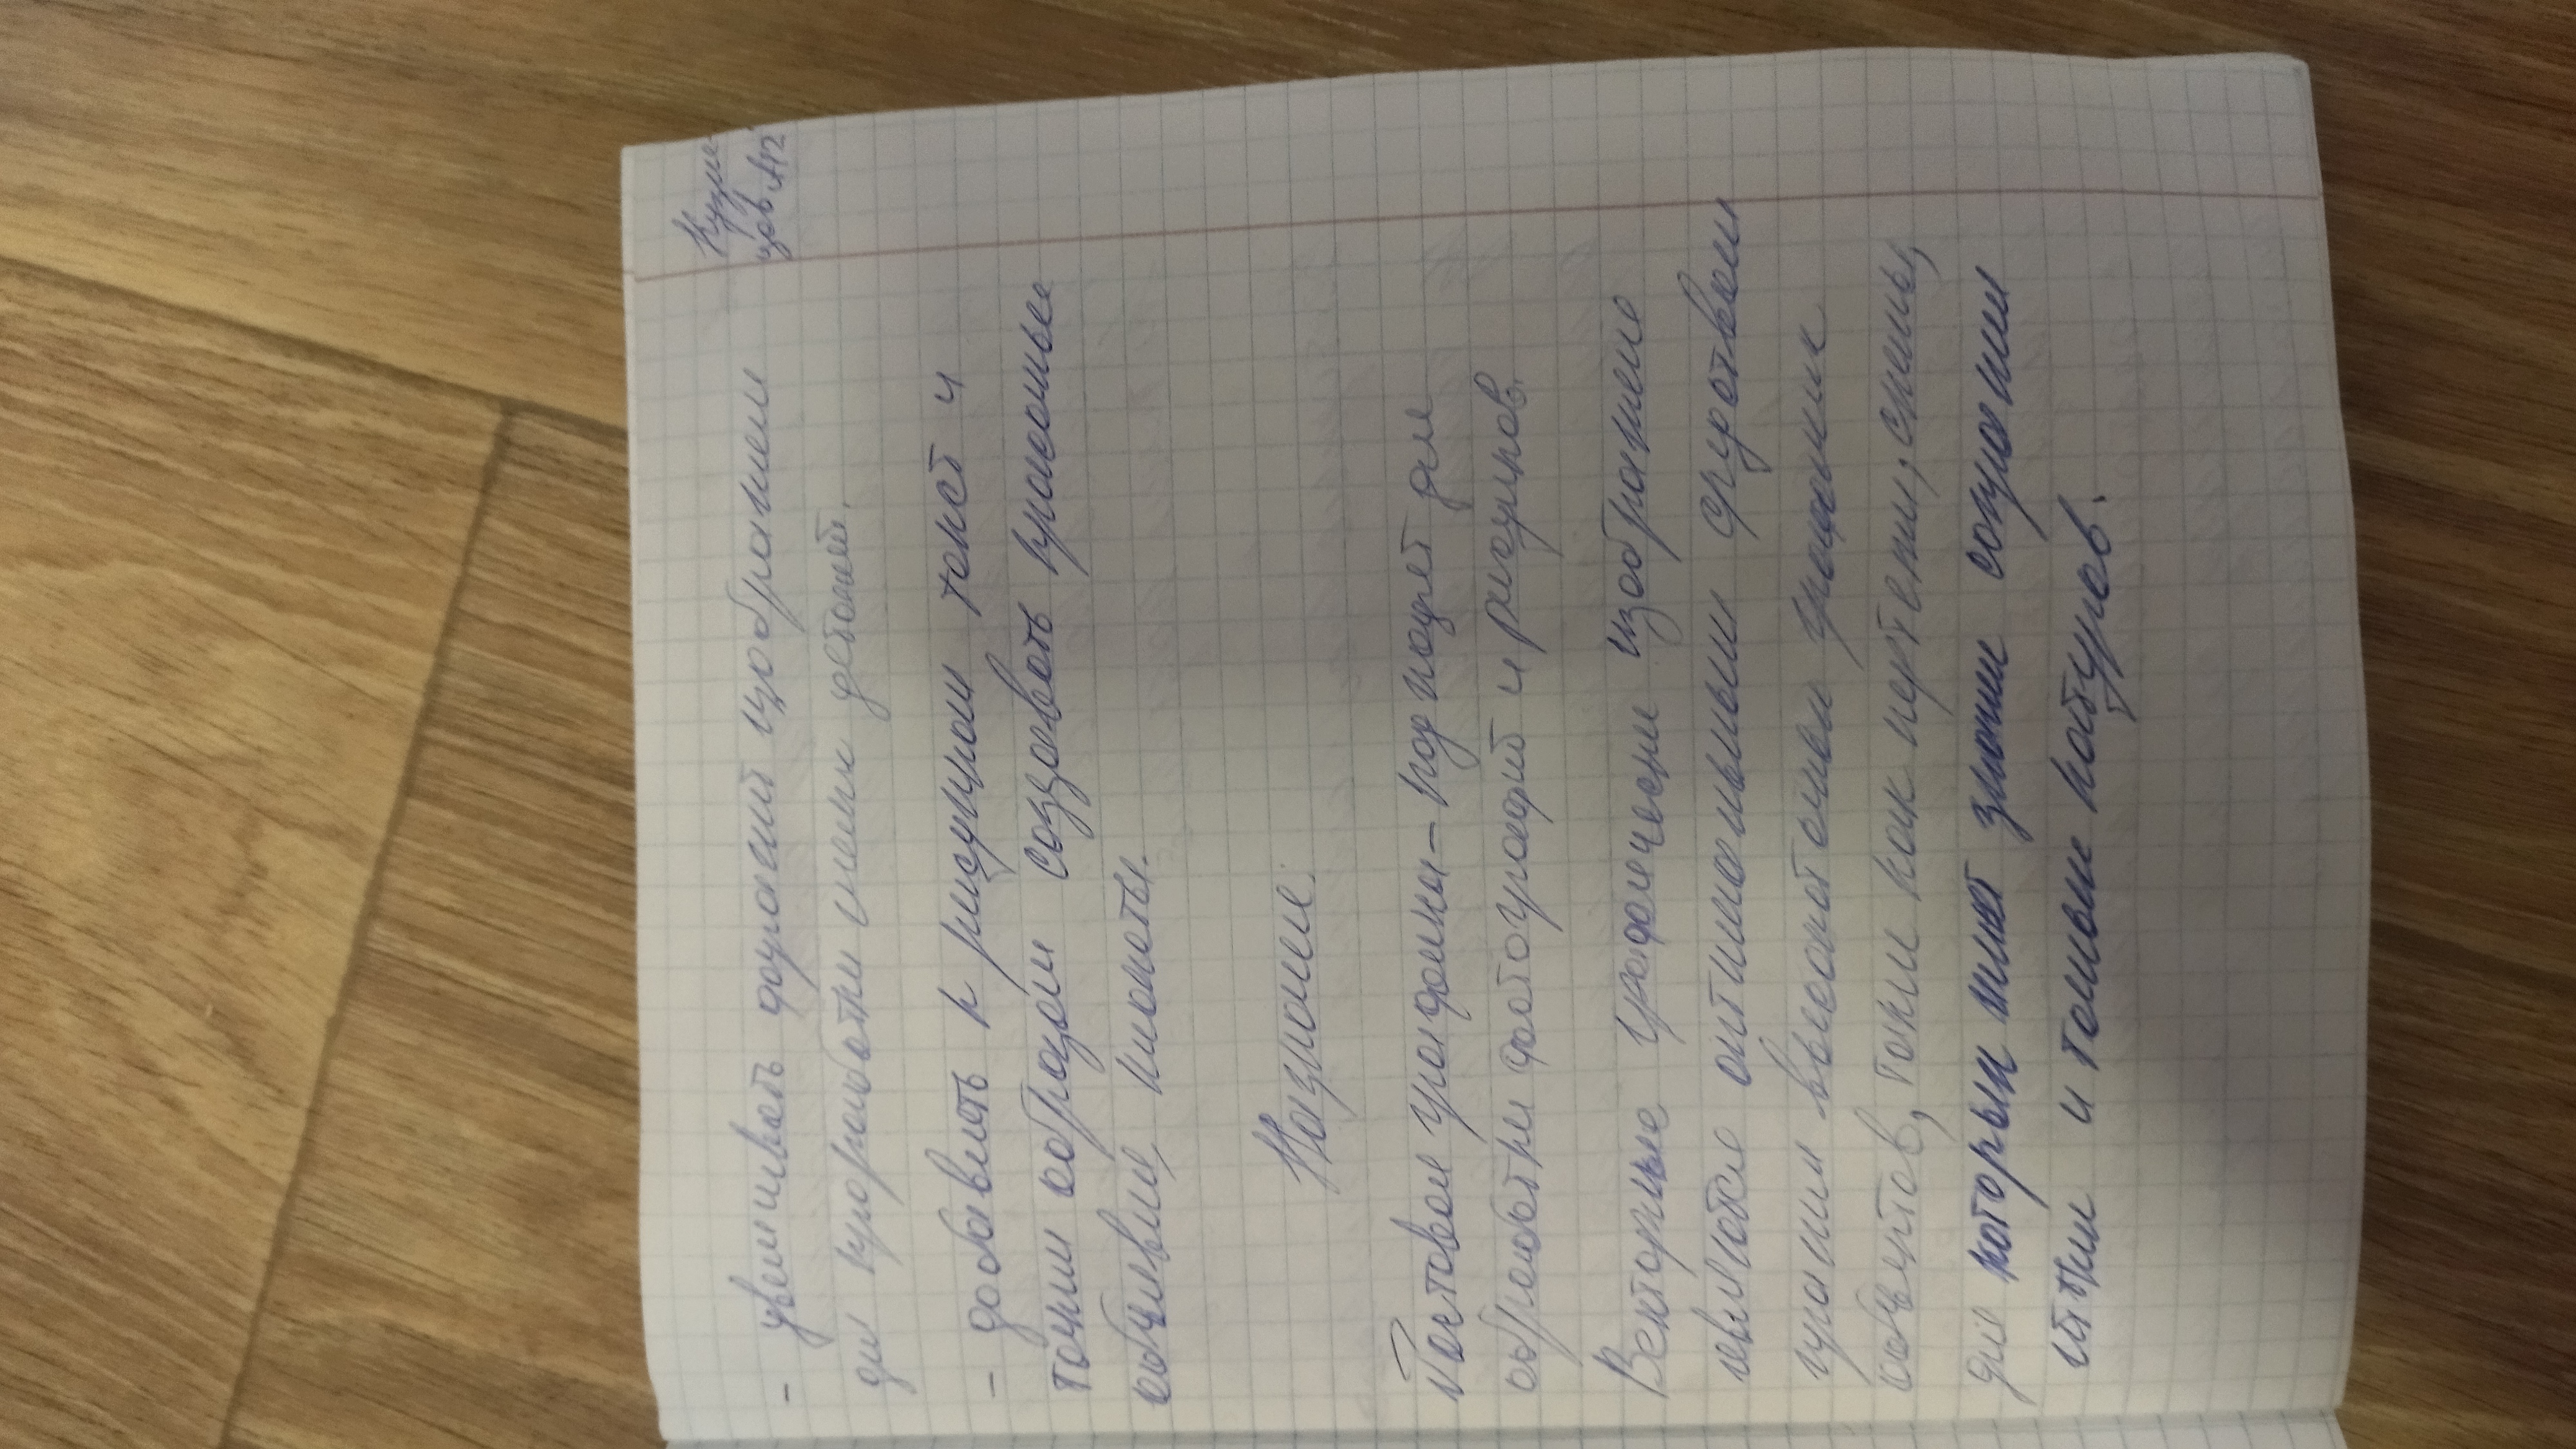 Кузне
цов А12
- увеличивать фрагмент изображения
для проработки мелких деталей.
- добавлять к рисункам текст и
таким образом создавать красочные
объявления, плакаты.
Назначение:
Растовая графика - подходит для
обработки фотографий и рисунков.
Векторные графические изображения
являются оптимальным средством
хранения высокоточных графических
объектов, такие как чертежи, схемы,
для которых имеет значение сохранение
чётких и томных контуров.